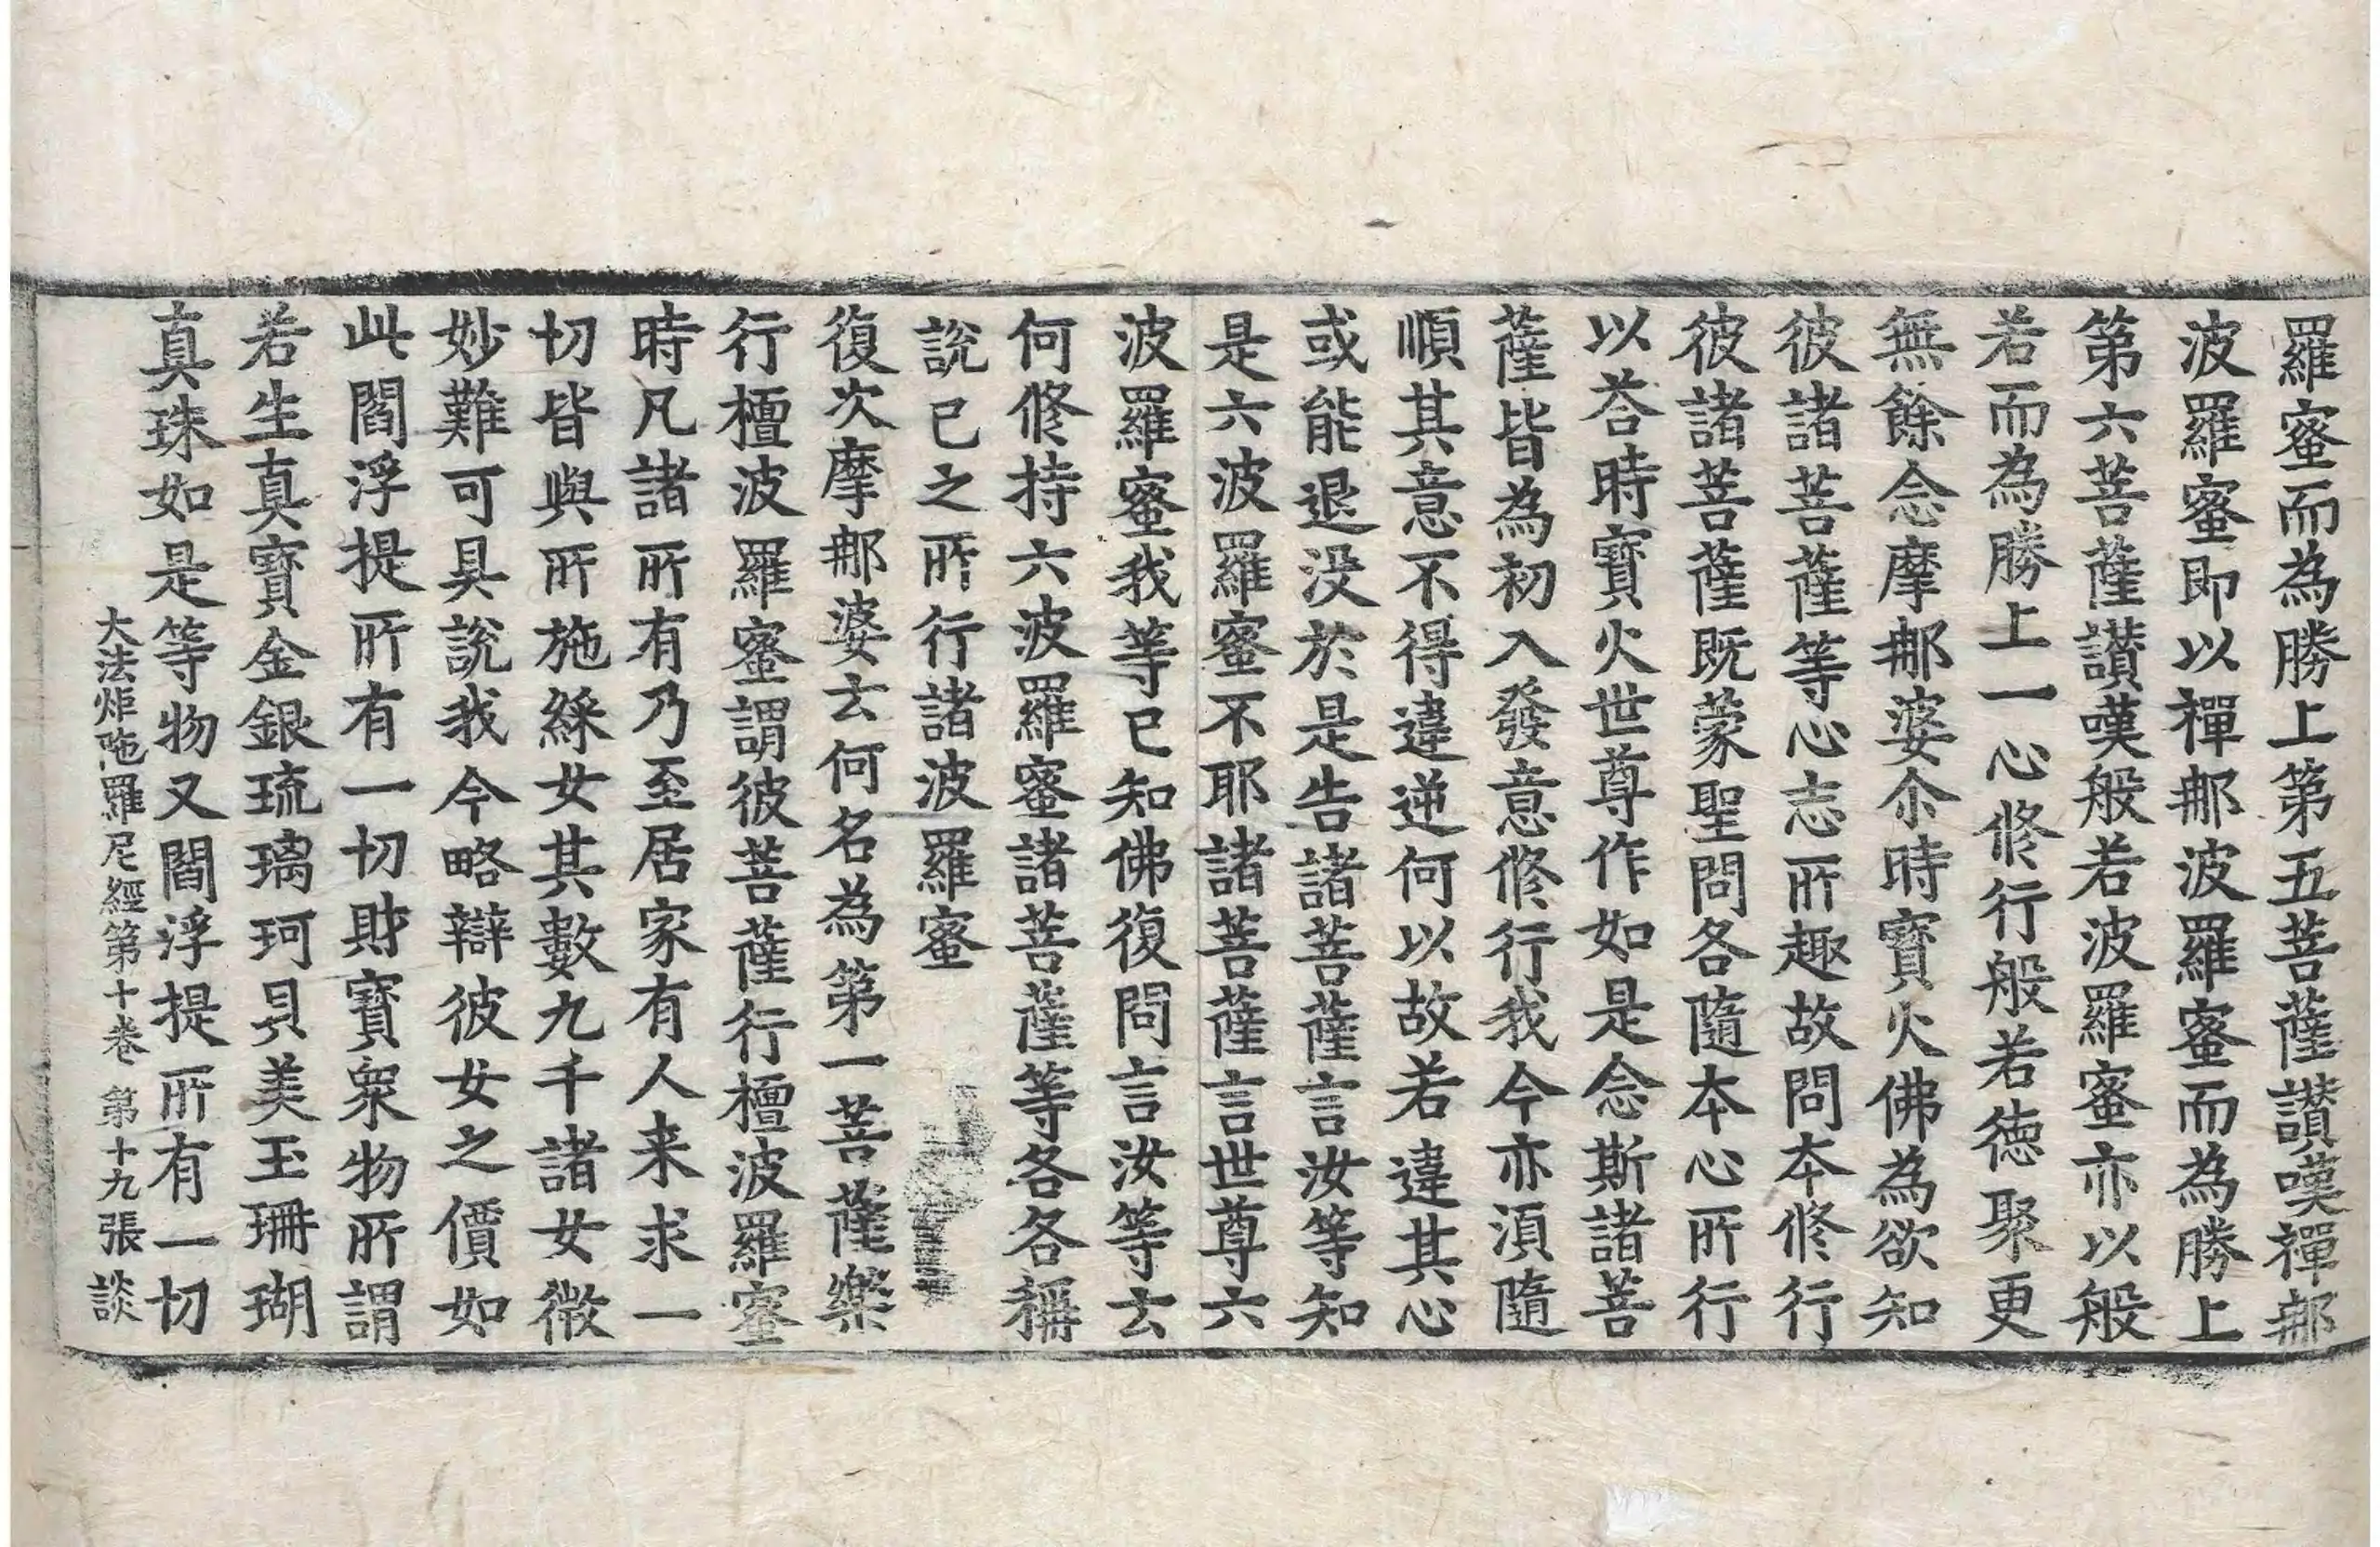 羅蜜而為勝上第五菩薩讃嘆禪那
波羅蜜即以禪那波羅蜜而為勝上
第六菩薩讃嘆般若波羅蜜亦以般
若而為勝上一心修行般若徳聚更
無餘念摩那婆尒時寳火佛為欲知
彼諸菩薩等心志所趣故問本修行
彼諸菩薩既蒙聖問各隨本心所行
以荅時寳火世尊作如是念斯諸菩
薩皆為初入發意修行我今亦湏隨
順其意不得違逆何以故若違其心
或能退没於是告諸菩薩言汝等知
是六波羅蜜不耶諸菩薩言世尊六
波羅蜜我等已知佛復問言汝等云
何修持六波羅蜜諸菩薩等各各稱
說已之所行諸波羅蜜
復次摩那婆云何名為第一菩薩樂
行檀波羅蜜謂彼菩薩行檀波羅蜜
時凡諸所有乃至居家有人来求一
切皆與所施綵女其數九千諸女微
妙難可具說我今略辯彼女之價如
此閻浮提所有一切財寳衆物所謂
若生真寳金銀琉璃珂貝美玉珊瑚
真珠如是等物又閻浮提所有一切
大法炬陁羅尼經第十卷 第十九張 談